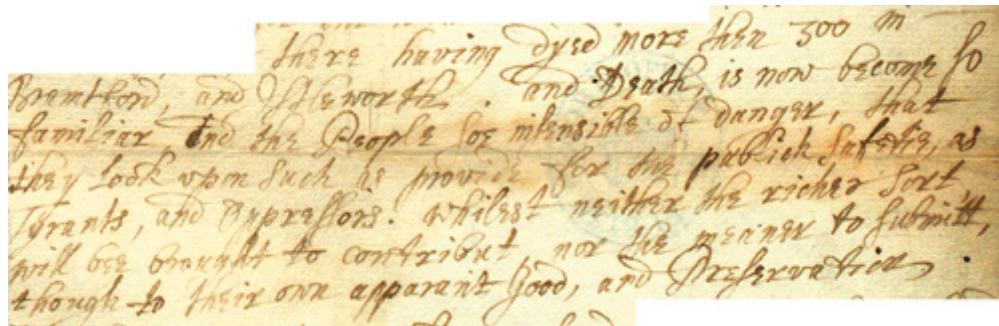 there having dyed more then 300 m
Bramtford, and Istleworth. and Death, is now become so
familiar, and the People soe insensible of danger, that
they look upon such as provide for the publick safetie, as
Tyrants, and Oppressors. Whilest neither the richer sort
will bee brought to contribut, nor the meaner to submitt,
though to their own apparant Good, and Preservation.